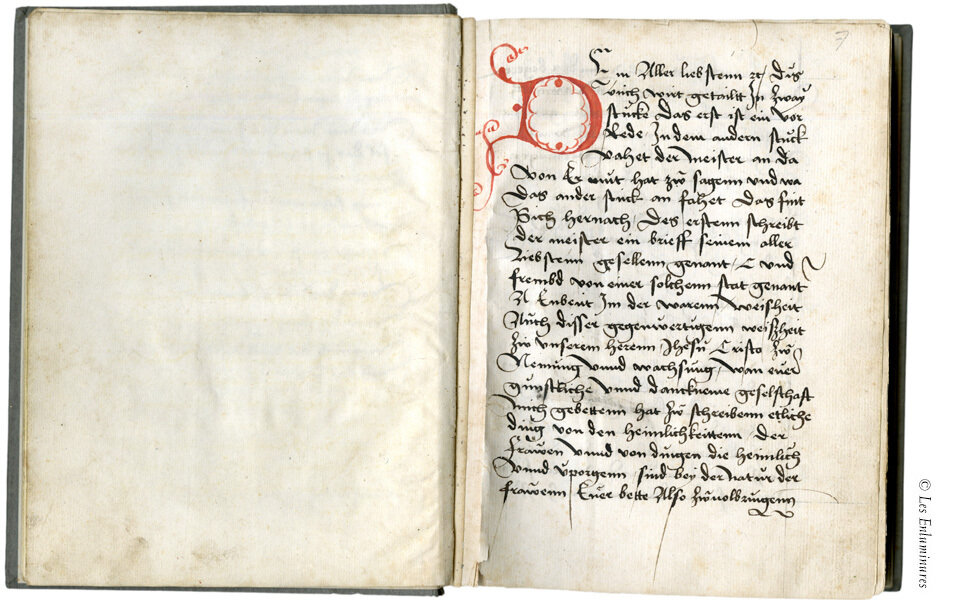 7
Dem Aller liebstenn ꝛc / dis
buͦch wirt getailtt In zway
stucke Das erst ist ein vor
Rede In dem andern stuck
vahet der meister an da
von Er mut hat zw̆ sagenn vnd wa
Das ander stuck an fahet Das fint
Sich hernach / Des erstenn schreibt
der meister ein brieff seinem aller
Liebstenn gesellenn genant / C vnd
frembd von einer solchenn stat genant
In der warenn weisheit
Auch disser gegenwertigenn weißheit
zw̆ vnserem herenn Jhesu Cristo zw̆
Nemung vnnd wachsung / wan euer
gunstliche vnnd danckneme geselschaft
mich gebettenn hat zw̆ schreibenn etliche
ding von den heimlichkeittenn der
frawen vnnd von dingen die heimlich
vnnd vporgenn sind bey der natur der
frawenn Euer bette Also zw̆ volbringenn
© Les Enluminures